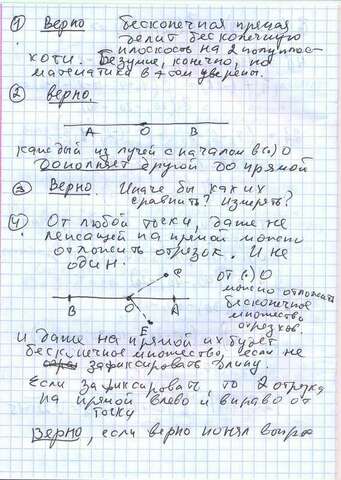 ① Верно Бесконечная прямая
делит бесконечную
плоскость на 2 полуплос-
кости. Безумие, конечно, но
математика в этом уверена.
② Верно.
А О В
каждый из лучей с началом в (•) О
дополняет другой до прямой
③ Верно. Иначе бы как их
сравнить? Измерять?
④ От любой точки, даже не
лежащей на прямой можно
отложить отрезок. И не
один.
от (•) О
можно отложить
бесконечное
множество
отрезков.
С
В О А
Е
и даже на прямой их будет
бесконечное множество, если не
зафиксировать длину.
Если зафиксировать, то 2 отрезка
на прямой влево и вправо от
точки
Верно, если верно понял вопрос